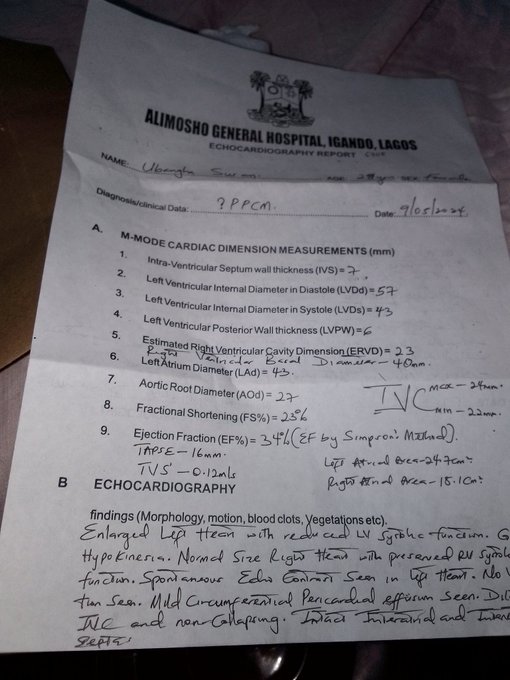 ALIMOSHO GENERAL HOSPITAL, IGANDO, LAGOS
ECHOCARDIOGRAPHY REPORT
NAME: Ubangha AGE: 28yrs SEX Female
Diagnosis/clinical Data: ?PPCM. Date: 9/05/2024
A. M-MODE CARDIAC DIMENSION MEASUREMENTS (mm)
1. Intra-Ventricular Septum wall thickness (IVS) = 7
2. Left Ventricular Internal Diameter in Diastole (LVDd) = 57
3. Left Ventricular Internal Diameter in Systole (LVDs) = 43
4. Left Ventricular Posterior Wall thickness (LVPW) = 6
5. Estimated Right Ventricular Cavity Dimension (ERVD) = 23
Right Ventricular Basal Diameter - 40mm.
6. Left Atrium Diameter (LAd) = 43.
7. Aortic Root Diameter (AOd) = 27
IVC max - 24mm
min - 22mm
8. Fractional Shortening (FS%) = 23%
9. Ejection Fraction (EF%) = 34% (EF by Simpson's Method).
TAPSE - 16mm.
TVS' - 0.12m/s
Left Atrial Area - 24.7cm²
Right Atrial Area - 18.1cm²
B ECHOCARDIOGRAPHY
findings (Morphology, motion, blood clots, Vegetations etc).
Enlarged Left Heart with reduced LV Systolic function. G
Hypokinesia. Normal Size Right Heart with preserved RV Systol
function. Spontaneous Echo Contrast Seen in left Heart. No
tion Seen. Mild Circumferential Pericardial effusion Seen. Dil
IVC and non-Collapsing. Intact Interatrial and Inter
Septa.